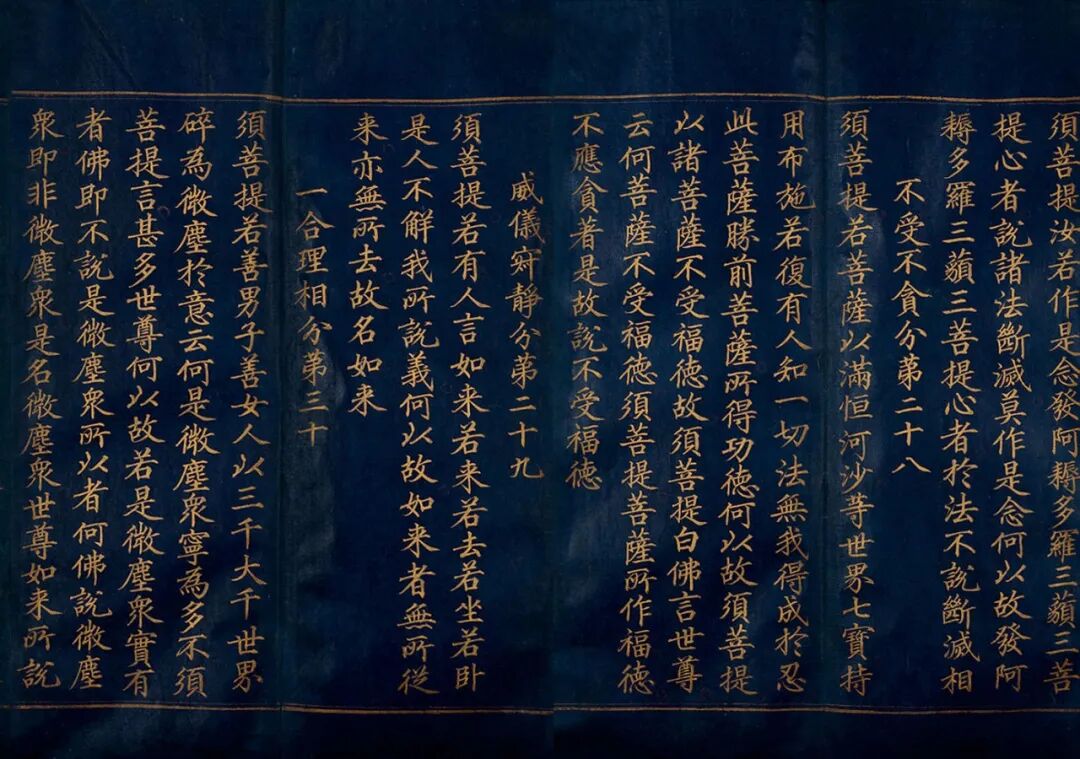 須菩提汝若作是念發阿耨多羅三藐三菩
提心者說諸法斷滅莫作是念何以故發阿
耨多羅三藐三菩提心者於法不說斷滅相
不受不貪分第二十八
須菩提若菩薩以滿恒河沙等世界七寶持
用布施若復有人知一切法無我得成於忍
此菩薩勝前菩薩所得功德何以故須菩提
以諸菩薩不受福德故須菩提白佛言世尊
云何菩薩不受福德須菩提菩薩所作福德
不應貪著是故說不受福德
威儀寂靜分第二十九
須菩提若有人言如来若来若去若坐若卧
是人不解我所說義何以故如来者無所從
来亦無所去故名如来
一合理相分第三十
須菩提若善男子善女人以三千大千世界
碎為微塵於意云何是微塵衆寧為多不須
菩提言甚多世尊何以故若是微塵衆實有
者佛即不說是微塵衆所以者何佛說微塵
衆即非微塵衆是名微塵衆世尊如来所說